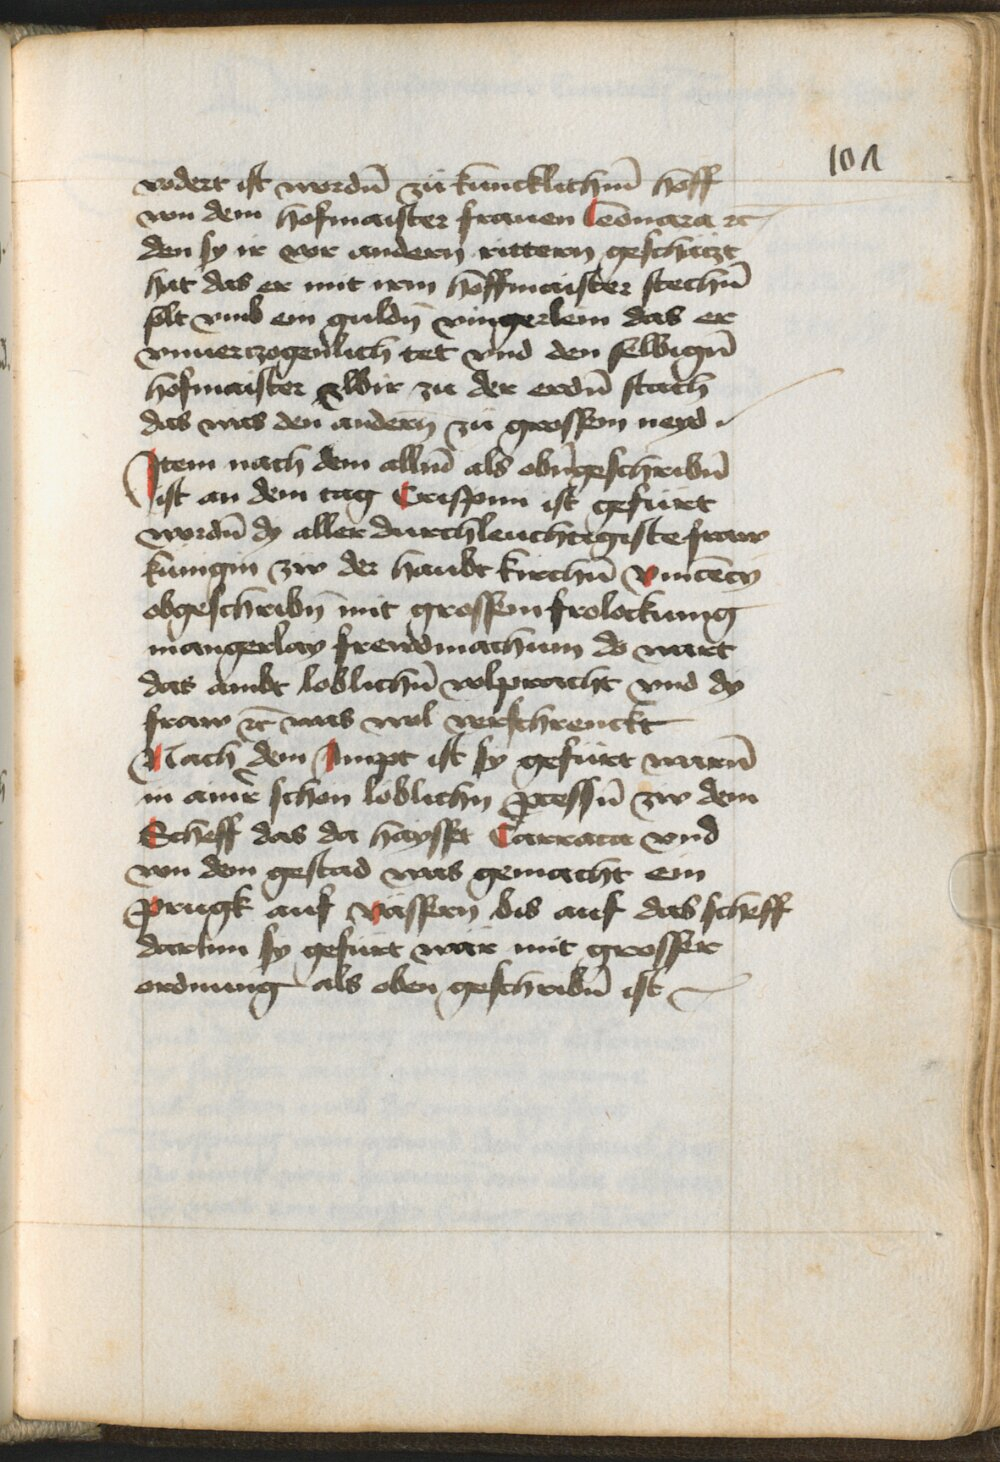 101
vodert ist wordn̄ zu kuncklichm̄ hoff
von dem hofmaister frauen Leonara ꝛc̄
den sy ir vor andern rittern geschaczt
hat das er mit irm hoffmaister stechn̄
solt vmb ein guldn̄ vingerlein das er
vnuerczogenlich tet vnd den selbign̄
hofmaister zwir zu der erdn̄ stach
das was den andern̄ zu grossem neyd
Item nach dem alln̄ als obn̄geschribn̄
ist an dem tag Crispini ist gefürt
wordn̄ dy aller durchleuchtegiste fraw
künigin zw der haubt kirchn̄ Vincēcy
obgeschribn̄ mit grossem frolockung
mangerlay frewdmachum do wart
das ambt loblichn̄ volpracht vnd dy
fraw ꝛc̄ was wol verschrenckt
Nach dem Ampt ist sy gefürt warn̄
in ainer schon loblichn ꝓcessn̄ zw dem
Scheff das da haysst Carraca vnd
von dem gestad was gemacht ein
prugk auf vässern bis auf das scheff
darinn sy gefürt war mit grosser
ordnung als oben geschribn̄ ist